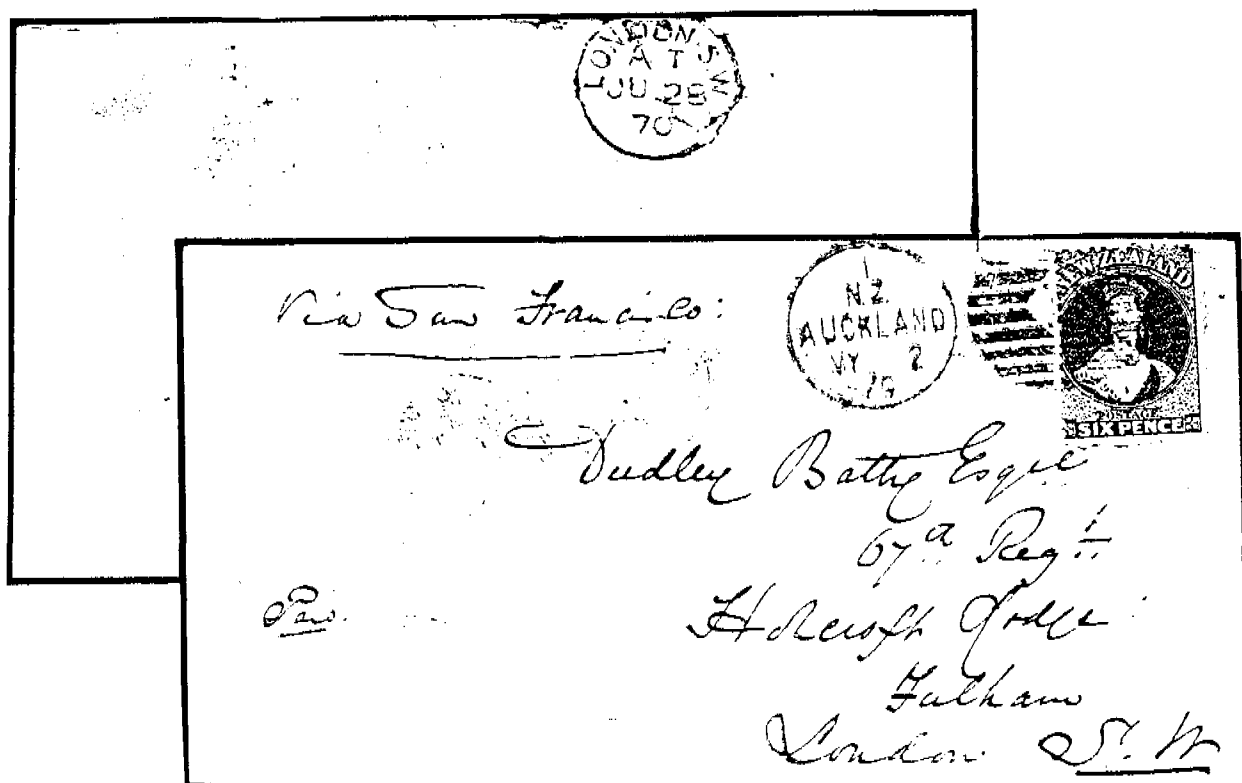 LONDON.S.W
A T
JU 28
70
Via San Francisco:
1
N.Z.
AUCKLAND
MY 2
70
NEW ZEALAND
POSTAGE
SIX PENCE
Dudley Batty Esqre
67th Regt
Holcroft Lodge
Fulham
London S.W